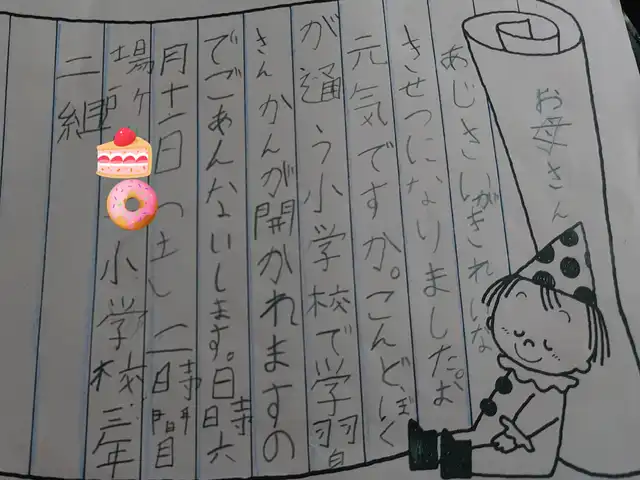 お母さん
あじさいがきれいな
きせつになりました。お
元気ですか。こんど、ぼく
が通う小学校で学習
さんかんが開かれますの
でごあんないします。日時 六
月十一日(土)二時間目
場所 小学校三年
二組